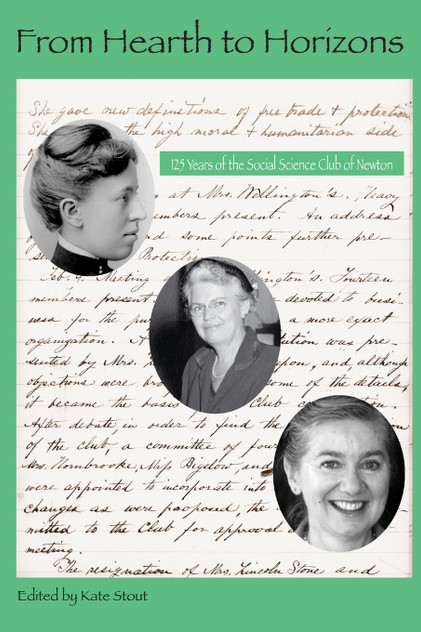 From Hearth to Horizons
She gave new definitions of free trade & protection
She the high moral & humanitarian side
125 Years of the Social Science Club of Newton
at Mrs. Wellington's. Heavy
members present. An address
and some points further pre-
Feb. 9. Meeting ington's. Fourteen
members present devoted to busi-
ness for the a more exact
organization. A was pre-
sented by Mrs. upon, and, although
objections were some of the details,
it became the basis Club
After debate, in order to find the
of the club, a committee of four
Mrs. Hornbrooke, Miss Bigelow, and
were appointed to incorporate into
changes as were proposed, the
mitted to the Club for approval
meeting.
The resignation of Mrs. Lincoln Stone and
Edited by Kate Stout